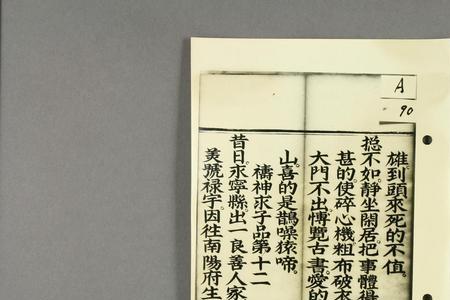 A
90
雄到頭來死的不值。
搃不如。靜坐閑居。把事體得
甚的。使碎心機。粗布破衣
大門不出。博覽古書。愛的
山。喜的是鵲噪猿啼。
禱神求子品第十二
昔日。永寧縣。出一良善人家
美號祿字。因往南陽府生